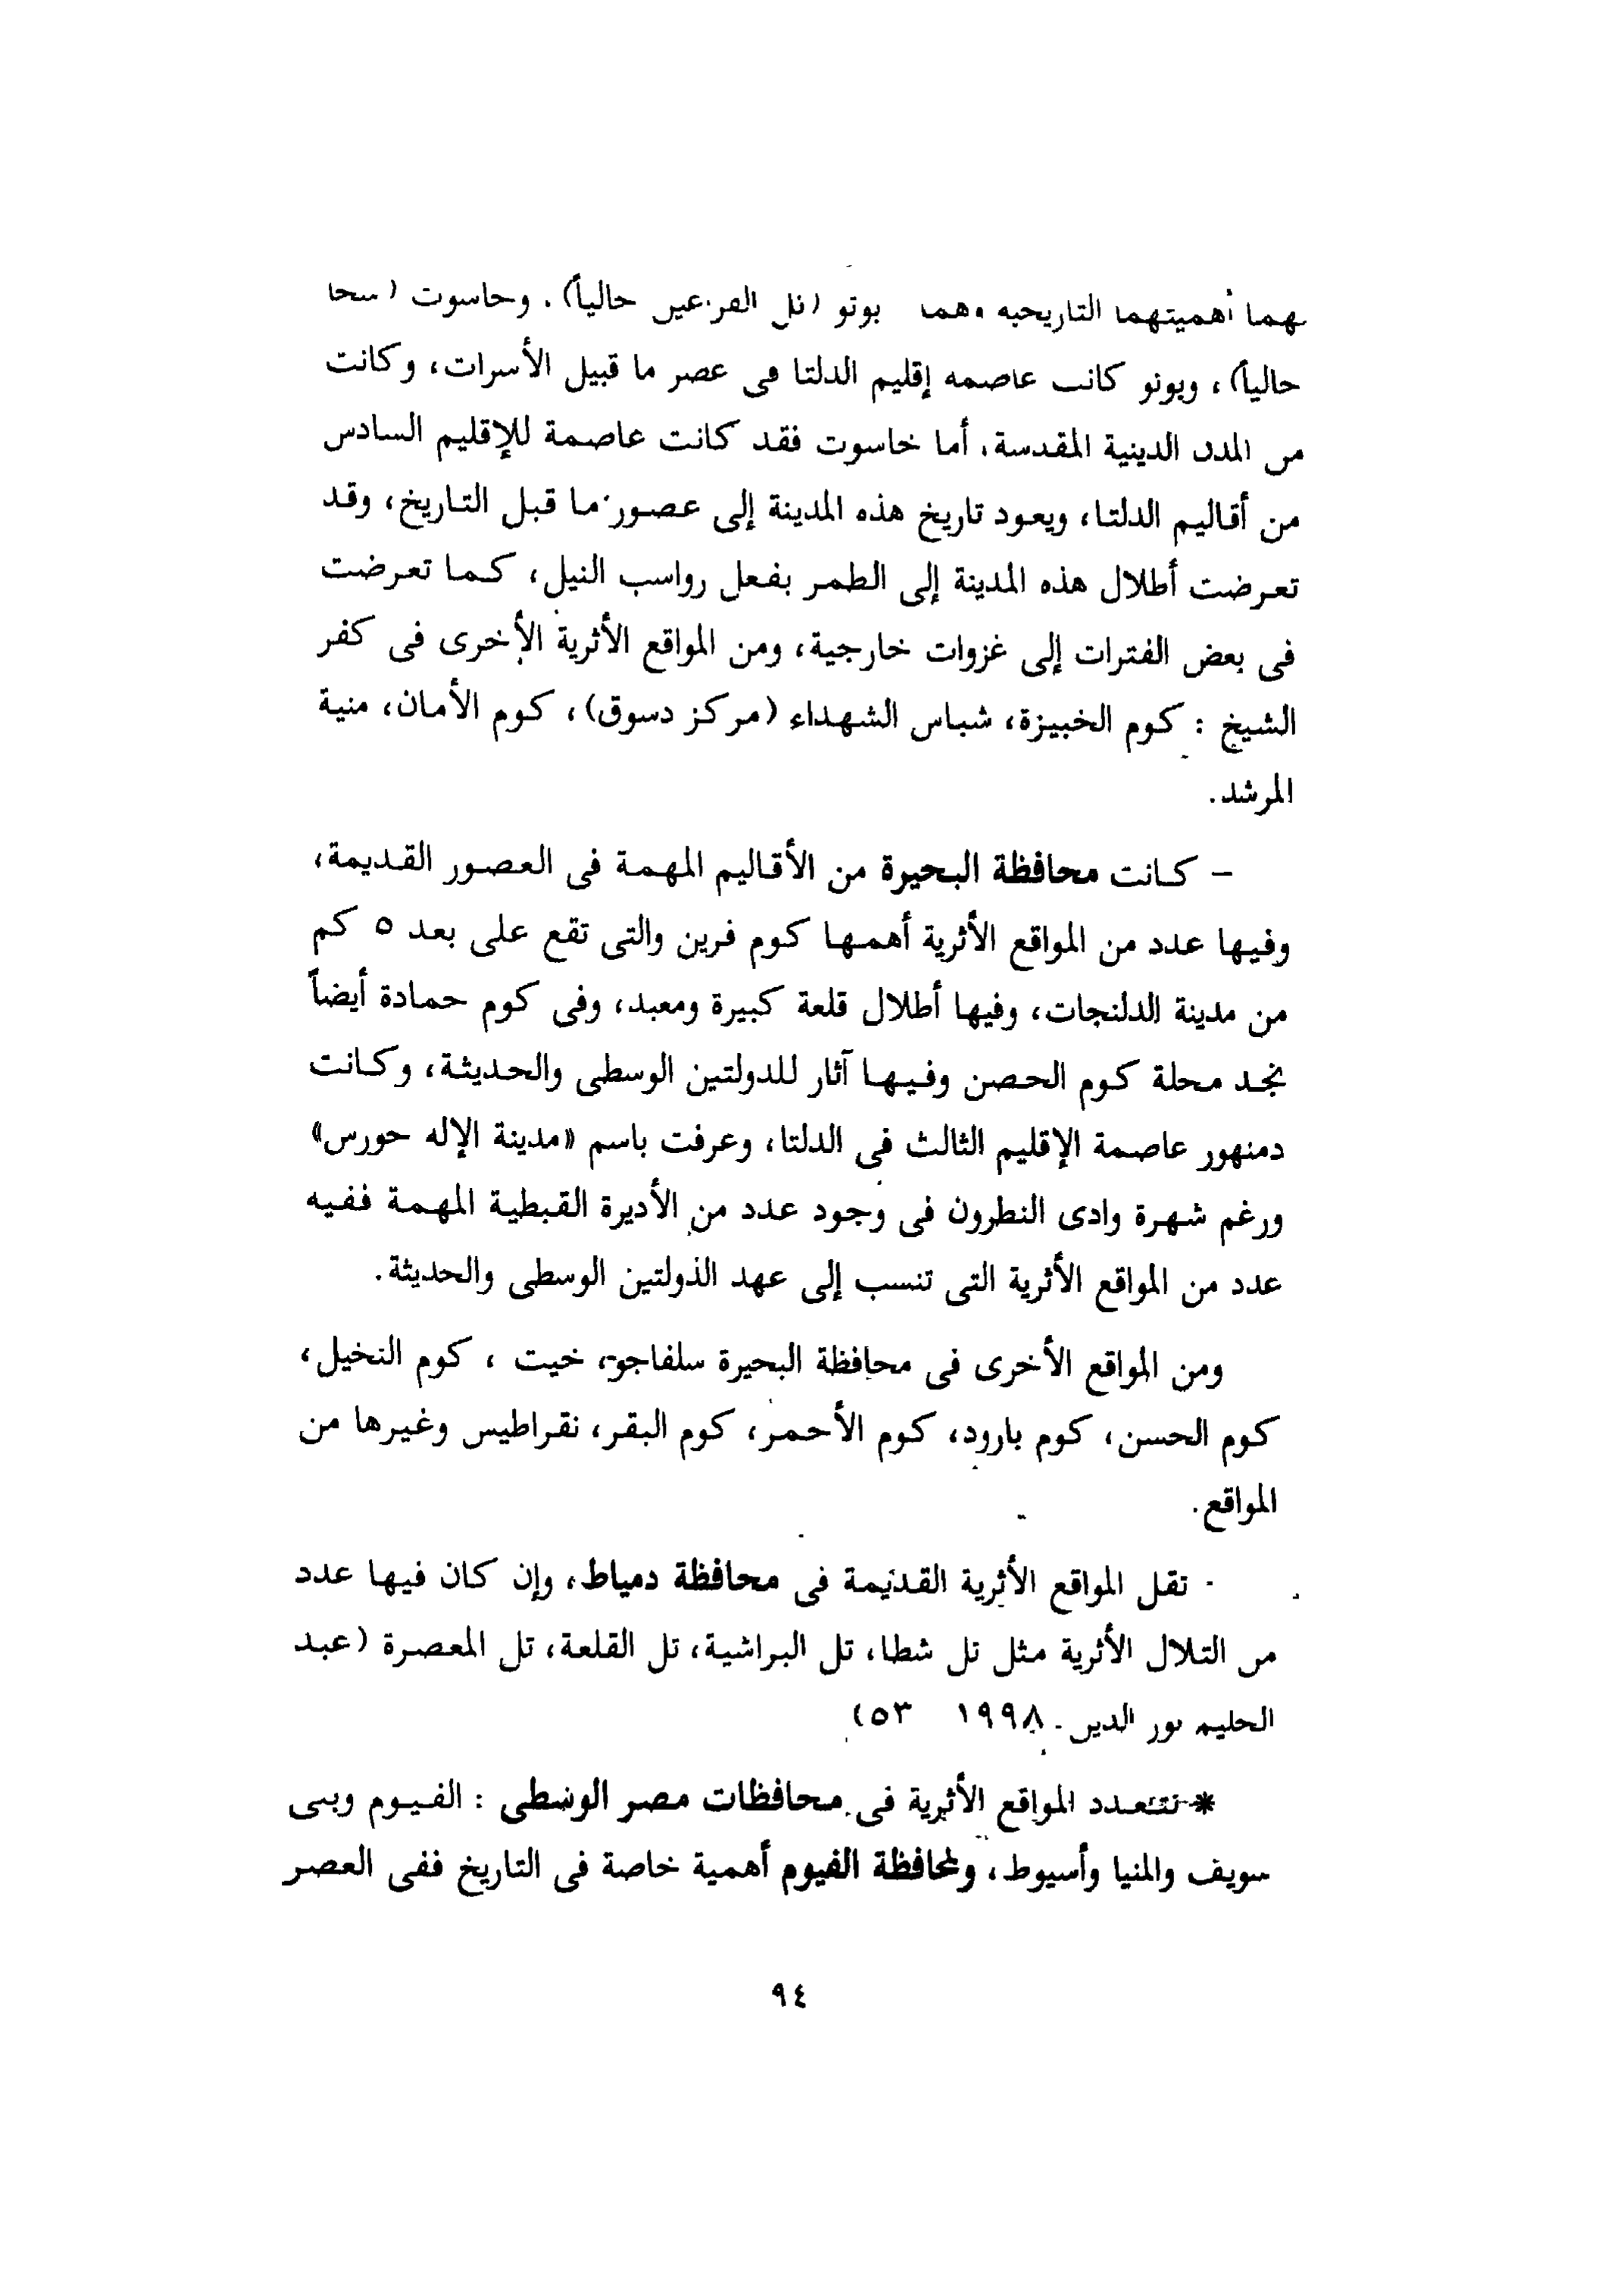 لهما أهميتهما التاريخية وهما بوتو (تل الفراعين حالياً)، وخاسوت (سخا
حالياً)، وبوتو كانت عاصمة إقليم الدلتا فى عصر ما قبيل الأسرات، وكانت
من المدن الدينية المقدسة، أما خاسوت فقد كانت عاصمة للإقليم السادس
من أقاليم الدلتا، ويعود تاريخ هذه المدينة إلى عصور ما قبل التاريخ، وقد
تعرضت أطلال هذه المدينة إلى الطمر بفعل رواسب النيل، كما تعرضت
فى بعض الفترات إلى غزوات خارجية، ومن المواقع الأثرية الأخرى فى كفر
الشيخ : كوم الخبيزة، شباس الشهداء (مركز دسوق)، كوم الأمان، منية
المرشد.
– كانت محافظة البحيرة من الأقاليم المهمة فى العصور القديمة،
وفيها عدد من المواقع الأثرية أهمها كوم فرين والتى تقع على بعد ٥ كم
من مدينة الدلنجات، وفيها أطلال قلعة كبيرة ومعبد، وفى كوم حمادة أيضاً
نجد محلة كوم الحصن وفيها آثار للدولتين الوسطى والحديثة، وكانت
دمنهور عاصمة الإقليم الثالث فى الدلتا، وعرفت باسم «مدينة الإله حورس»
ورغم شهرة وادى النطرون فى وجود عدد من الأديرة القبطية المهمة ففيه
عدد من المواقع الأثرية التى تنسب إلى عهد الدولتين الوسطى والحديثة.
ومن المواقع الأخرى فى محافظة البحيرة سلفاجو، خيت ، كوم النخيل،
كوم الحسن، كوم بارود، كوم الأحمر، كوم البقر، نقراطيس وغيرها من
المواقع.
- تقل المواقع الأثرية القديمة فى محافظة دمياط، وإن كان فيها عدد
من التلال الأثرية مثل تل شطا، تل البراشية، تل القلعة، تل المعصرة (عبد
الحليم نور الدين - ١٩٩٨ ٥٣)
* تتعدد المواقع الأثرية فى محافظات مصر الوسطى : الفيوم وبنى
سويف والمنيا وأسيوط، ولمحافظة الفيوم أهمية خاصة فى التاريخ ففى العصر
٩٤